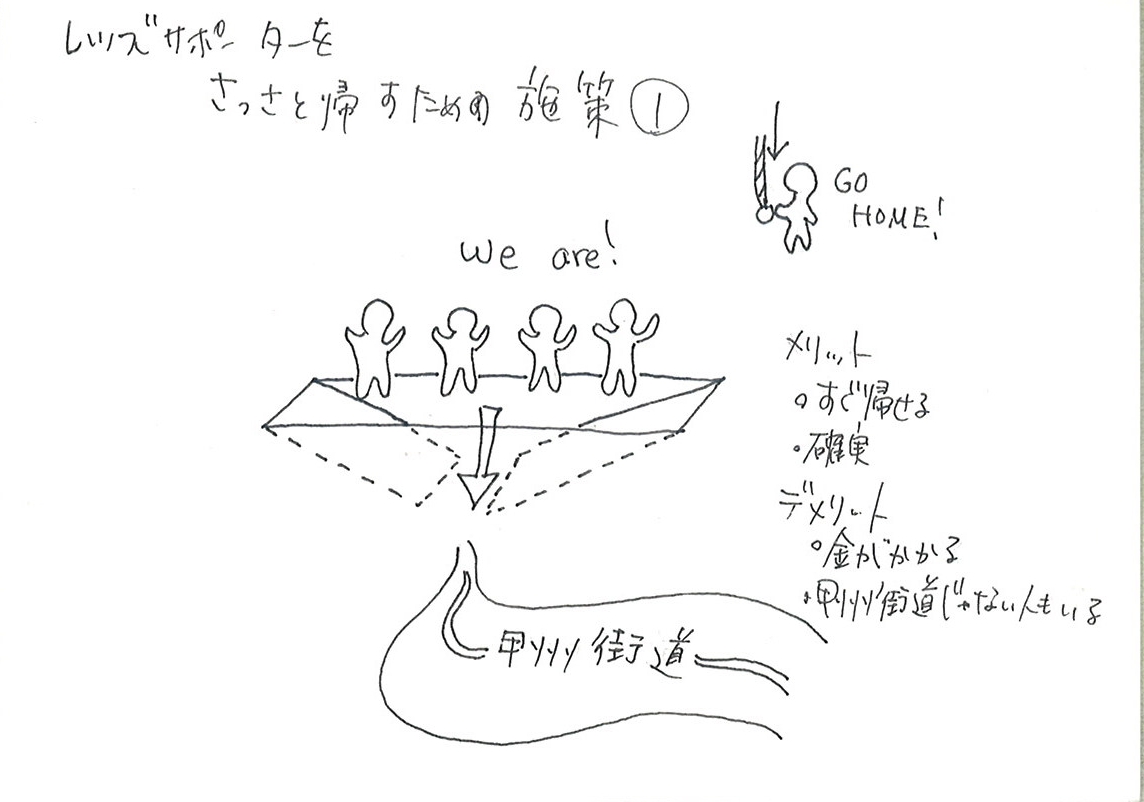 レッズサポーターを
さっさと帰すための施策①
GO
HOME!
We are!
メリット
・すぐ帰せる
・確実
デメリット
・金がかかる
・甲州街道じゃない人もいる
甲州街道